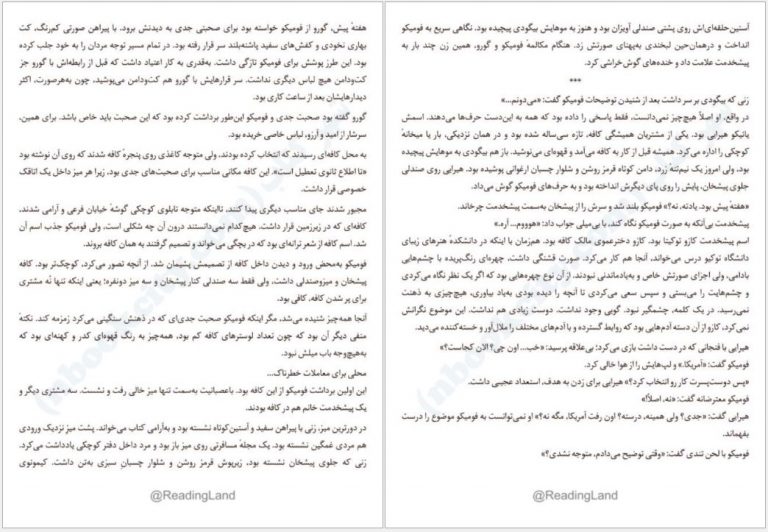 هفتهٔ پیش، گورو از فومیکو خواسته بود برای صحبتی جدی به دیدنش برود. با پیراهن صورتی کم‌رنگ، کت
بهاری نخودی و کفش‌های سفید پاشنه‌بلند سر قرار رفته بود. در تمام مسیر توجه مردان را به خود جلب کرده
بود. این طرز پوشش برای فومیکو تازگی داشت. به‌قدری به کار اعتیاد داشت که قبل از رابطه‌اش با گورو جز
کت‌ودامن هیچ لباس دیگری نداشت. سر قرارهایش با گورو هم کت‌ودامن می‌پوشید، چون به‌هرصورت، اکثر
دیدارهایشان بعد از ساعت کاری بود.
گورو گفته بود صحبت جدی و فومیکو این‌طور برداشت کرده بود که این صحبت باید خاص باشد. برای همین،
سرشار از امید و آرزو، لباس خاصی خریده بود.
به محل کافه‌ای رسیدند که انتخاب کرده بودند، ولی متوجه کاغذی روی پنجرهٔ کافه شدند که روی آن نوشته بود
«تا اطلاع ثانوی تعطیل است». این کافه مکانی مناسب برای صحبت‌های جدی بود، زیرا هر میز داخل یک اتاقک
خصوصی قرار داشت.
مجبور شدند جای مناسب دیگری پیدا کنند. تااینکه متوجه تابلوی کوچکی گوشهٔ خیابان فرعی و آرامی شدند.
کافه‌ای که در زیرزمین قرار داشت. هیچ‌کدام نمی‌دانستند درون آن چه شکلی است، ولی فومیکو جذب اسم آن
شد. اسم کافه از شعر ترانه‌ای بود که در بچگی می‌خواند و تصمیم گرفتند به همان کافه بروند.
فومیکو به‌محض ورود و دیدن داخل کافه از تصمیمش پشیمان شد. از آنچه تصور می‌کرد، کوچک‌تر بود. کافه
پیشخان و میزوصندلی داشت. ولی فقط سه صندلی کنار پیشخان و سه میز دونفره؛ یعنی اینکه تنها نُه مشتری
برای پر شدن کافه، کافی بود.
آنجا همه‌چیز شنیده می‌شد، مگر اینکه فومیکو صحبت جدی‌ای که در ذهنش سنگینی می‌کرد زمزمه کند. نکتهٔ
منفی دیگر آن بود که چون تعداد لوسترهای کافه کم بود، همه‌چیز به رنگ قهوه‌ای کدر و کهنه‌ای بود که
به‌هیچ‌وجه باب میلش نبود.
محلی برای معاملات خطرناک...
این اولین برداشت فومیکو از این کافه بود. باعصبانیت به‌سمت تنها میز خالی رفت و نشست. سه مشتری دیگر و
یک پیشخدمت خانم هم در کافه بودند.
در دورترین میز، زنی با پیراهن سفید و آستین‌کوتاه نشسته بود و به‌آرامی کتاب می‌خواند. پشت میز نزدیک ورودی
هم مردی غمگین نشسته بود. یک مجلهٔ مسافرتی روی میز باز بود و مرد داخل دفتر کوچکی یادداشت می‌کرد.
زنی که جلوی پیشخان نشسته بود، زیرپوش قرمز روشن و شلوار چسبان سبزی به‌تن داشت. کیمونوی
@ReadingLand
آستین‌حلقه‌ای‌اش روی پشتی صندلی آویزان بود و هنوز به موهایش بیگودی پیچیده بود. نگاهی سریع به فومیکو
انداخت و درهمان‌حین لبخندی به‌پهنای صورتش زد. هنگام مکالمهٔ فومیکو و گورو، همین زن چند بار به
پیشخدمت علامت داد و خنده‌های گوش‌خراشی کرد.
***
زنی که بیگودی بر سر داشت بعد از شنیدن توضیحات فومیکو گفت: «می‌دونم...»
در واقع، او اصلاً هیچ‌چیز نمی‌دانست، فقط پاسخی را داده بود که همه به این‌دست حرف‌ها می‌دهند. اسمش
یائیکو هیرایی بود. یکی از مشتریان همیشگی کافه، تازه سی‌ساله شده بود و در همان نزدیکی، بار یا میخانهٔ
کوچکی را اداره می‌کرد. همیشه قبل از کار به کافه می‌آمد و قهوه‌ای می‌نوشید. باز هم بیگودی به موهایش پیچیده
بود، ولی امروز یک نیم‌تنه زرد، دامن کوتاه قرمز روشن و شلوار چسبان ارغوانی پوشیده بود. هیرایی روی صندلی
جلوی پیشخان، پایش را روی پای دیگرش انداخته بود و به حرف‌های فومیکو گوش می‌داد.
«هفتهٔ پیش بود. یادته، نه؟» فومیکو بلند شد و سرش را از پیشخان به‌سمت پیشخدمت چرخاند.
پیشخدمت بی‌آنکه به صورت فومیکو نگاه کند، با بی‌میلی جواب داد: «هوووم... آره.»
اسم پیشخدمت کازو توکیتا بود. کازو دخترعموی مالک کافه بود. هم‌زمان با اینکه در دانشکدهٔ هنرهای زیبای
دانشگاه توکیو درس می‌خواند، آنجا هم کار می‌کرد. صورت قشنگی داشت، چهره‌ای رنگ‌پریده با چشم‌هایی
بادامی، ولی اجزای صورتش خاص و به‌یادماندنی نبودند. از آن نوع چهره‌هایی بود که اگر یک نظر نگاه می‌کردی
و چشم‌هایت را می‌بستی و سپس سعی می‌کردی تا آنچه را دیده بودی به‌یاد بیاوری، هیچ‌چیزی به ذهنت
نمی‌رسید. در یک کلمه، چشمگیر نبود. گویی وجود نداشت. دوست زیادی هم نداشت. این موضوع نگرانش
نمی‌کرد، کازو از آن دسته آدم‌هایی بود که روابط گسترده و با آدم‌های مختلف را ملال‌آور و خسته‌کننده می‌دید.
هیرایی با فنجانی که در دست داشت بازی می‌کرد؛ بی‌علاقه پرسید: «خب... اون چی؟ الان کجاست؟»
فومیکو گفت: «آمریکا.» و لپ‌هایش را از هوا خالی کرد.
«پس دوست‌پسرت کار رو انتخاب کرد؟» هیرایی برای زدن به هدف، استعداد عجیبی داشت.
فومیکو معترضانه گفت: «نه. اصلاً!»
هیرایی گفت: «جدی؟ ولی همینه، درسته؟ اون رفت آمریکا، مگه نه؟» او نمی‌توانست به فومیکو موضوع را درست
بفهماند.
فومیکو با لحن تندی گفت: «وقتی توضیح می‌دادم، متوجه نشدی؟»
@ReadingLand